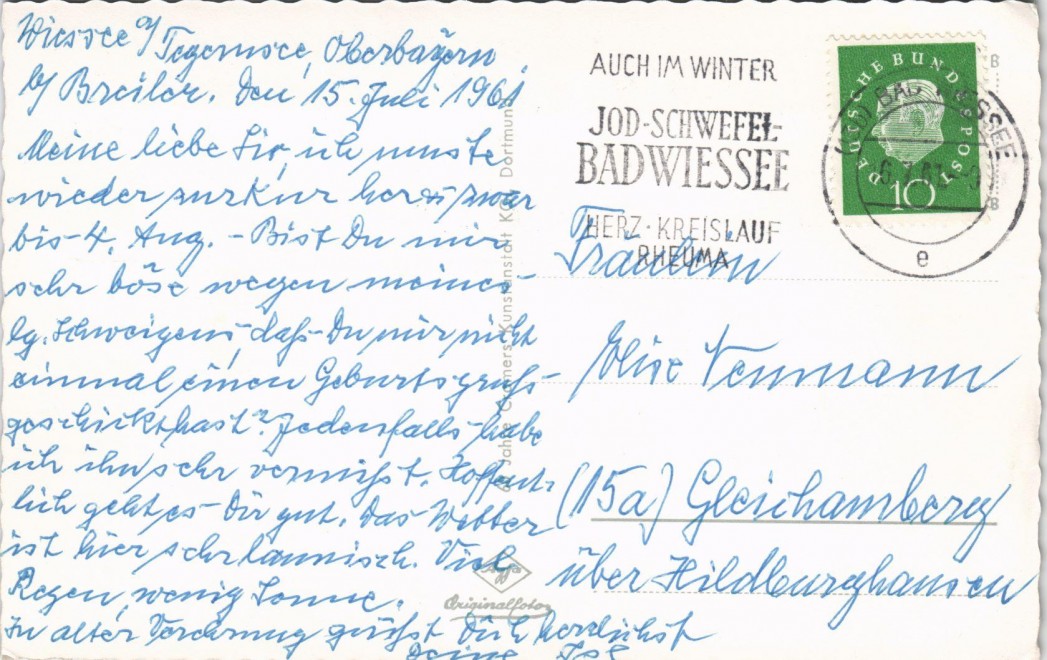 Wiessee a/Tegernsee, Oberbayern
b/ Breiler. Den 15. Juli 1961
Meine liebe Lir, ich musste
wieder zur Kur her zwar
bis 4. Aug. - Bist Du mir
sehr böse wegen meines
lg. Schweigens daß Du mir nicht
einmal einen Geburtsgruß
geschickt hast? Jedenfalls habe
ich ihn sehr vermißt. Hoffent-
lich geht es Dir gut. Das Wetter
ist hier sehr launisch. Viel
Regen, wenig Sonne.
In alter Verehrung grüßt Dich herzlichst
Deine
AUCH IM WINTER
JOD-SCHWEFEL-
BAD WIESSEE
HERZ · KREISLAUF
RHEUMA
DEUTSCHE BUNDESPOST
10
BAD WIESSEE
e
Jahre Cramers Kunstanstalt KG, Dortmund
Fräulein
Elise Neumann
(15a) Gleichamberg
über Hildburghausen
Agfa
Originalfoto